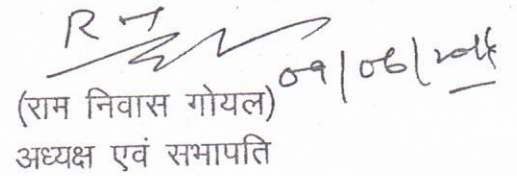 09/06/
(राम निवास गोयल)
अध्यक्ष एवं सभापति